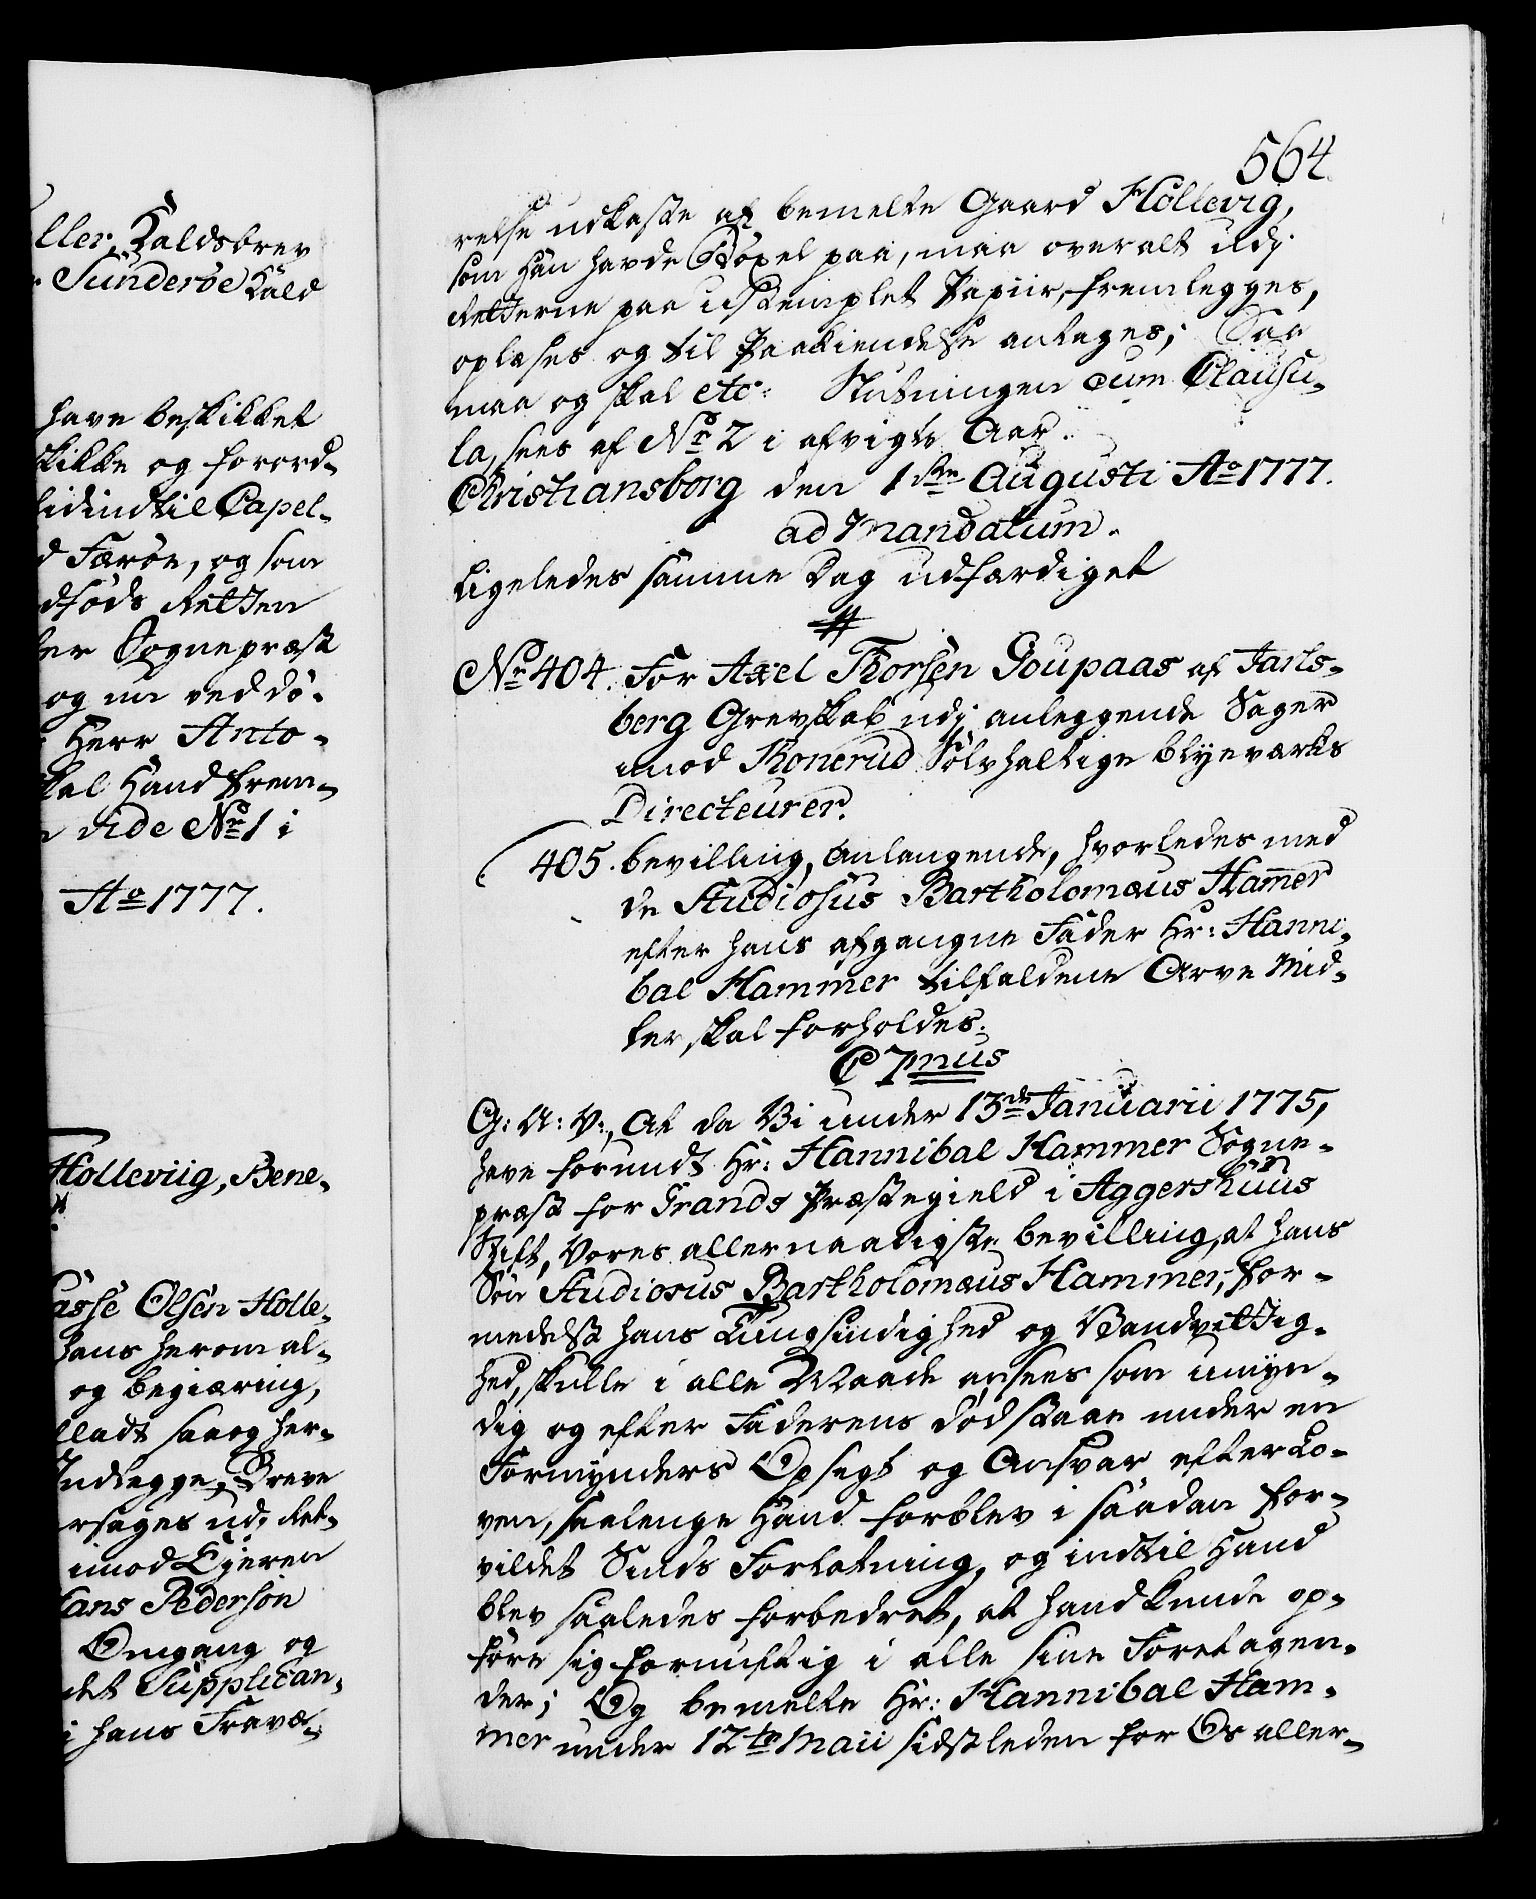 ller, Kaldsbrev
Sünderöe Kald
have beskikket
skikke og forord-
tid indtil Capel-
d Færöe, og som
dføds Retten
ter Sognepræst
og nu ved dö-
Herr Anto-
skal Hand frem-
vide No. 1 i
Ao 1777.
Holleviig, Bene-
asse Olsen Holle-
hans herom al-
og begiæring,
lladt saa og her-
Indlegge, Breve
rsages udi Ret-
imod Eyeren
Hans Pederson
Omgang og
det Supplican-
i hans Fravæ-
564.
relse udkaste af bemelte Gaard Hollevig,
som han havde Böxel paa, maa overalt udi
Retterne paa ustemplet Papiir fremlegges,
oplæses og til Paakiendelse antages; Saa
maa og skal etc: Slutningen cum Clausu-
la, sees af No. 2 i afvigte Aar.
Christiansborg den 1ste Augusti Ao 1777.
ad Mandatum.
Ligeledes samme Dag udfærdiget
No. 404. For Axel Thorsen Goupaas af Jarls-
berg Grevskab udi anleggende Sager
imod Konerud Sölvhaltige Blyeværks
Directeurer.
405. Bevilling, anlangende, hvorledes med
de Studiosus Bartholomæus Hammer
efter hans afgangne Fader Hr: Hanni-
bal Hammer tilfaldene Arve Mid-
ler, skal forholdes.
C 7mus
G: A: V:, At da Vi under 13de Januarii 1775,
have forundt Hr: Hannibal Hammer Sogne-
præst for Grands Præstegield i Aggershuus
Stift, Vores allernaadigste bevilling, at hans
Sön Studiosus Bartholomæus Hammer, for-
medelst hans Tungsindighed og Vandvittig-
hed, skulle i alle Maade ansees som umyn-
dig og efter Faderens Död staae under en
Formynders Opsigt og Ansvar efter Lo-
ven, saalenge Hand forblev i saadan for-
vildet Sinds Forfatning, og indtil Hand
blev saaledes forbedret, at hand kunde op-
före sig fornuftig i alle sine Foretagen-
der; Og bemelte Hr: Hannibal Ham-
mer under 12te Maii sidstleden for Os aller-